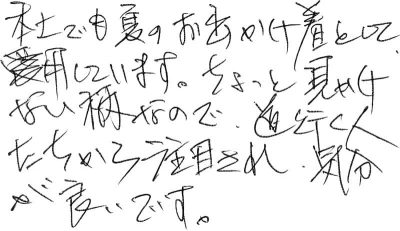 本土でも夏のお出かけ着として
愛用しています。ちょっと見かけ
ない柄なので、道行く人
たちから注目され、気分
が良いです。